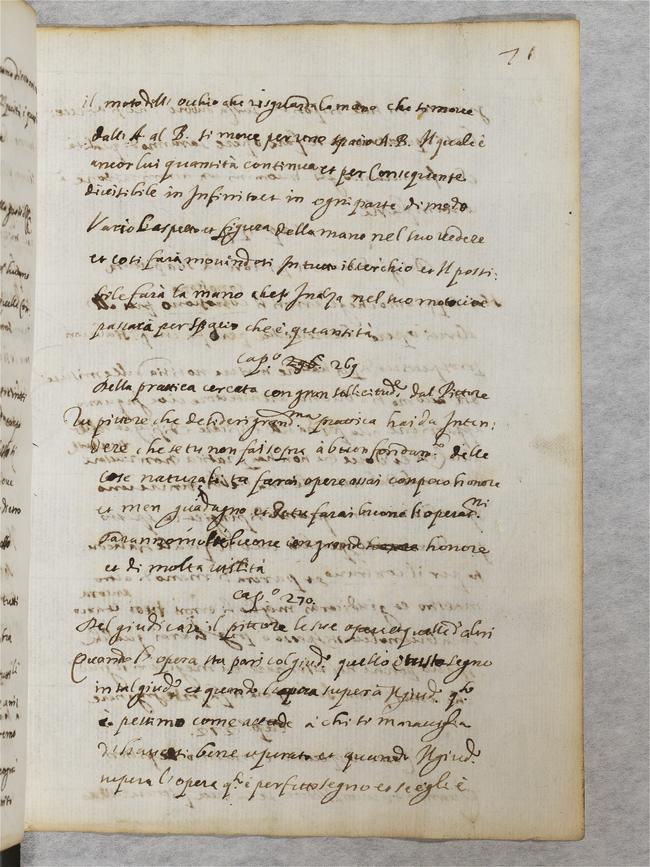 71
il moto dell'occhio che risguarda la mano che si move
dall A al B. si move per uno spacio A.B. Il quale è
ancor lui quantità continua et per Consequente
divisibile in Infinito et in ogni parte di moto
Varia l'aspetto et figura della mano nel suo vedere
et così farà movendosi In tutto il cerchio et Il posi:
bile farà la mano che s'Inalza nel suo moto cioè
passarà per spacio che è quantità
Cap.º 269
Della prattica cercata con gran sollicitud.e dal Pittore
Tu pittore che desideri grand.ma pratica hai da Inten:
dere che se tu non fai sopra à buon fondam.to delle
cose naturali tu farai opere assai con poco honore
et men guadagno et se tu farai buone l'opere
saranno molte et buone con grande honore
et di molta utilità
Cap.º 270.
Del giudicare il pittore le sue opere et quelle d'altri
Quando l'opera sta pari col giud.o quello è tristo segno
in tal giud.o et quando l'opera supera Il giud.o q.to
è pessimo come accade à chi si maraviglia
d'haver si bene operato et quando Il giud.o
supera l'opera q.to è perfetto segno et se egli è